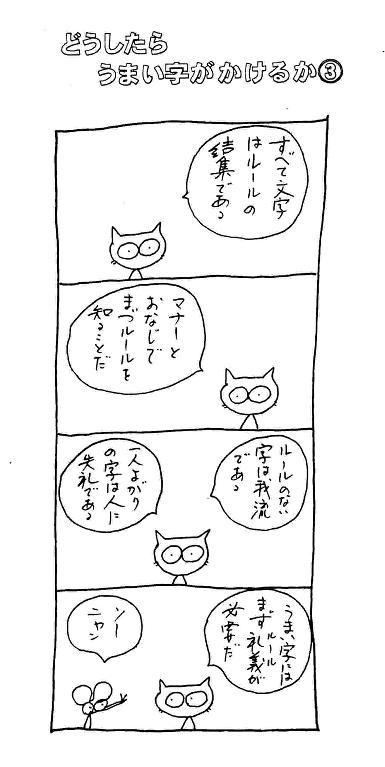 どうしたら
うまい字がかけるか③
すべて文字
はルールの
結集である
マナーと
おなじで
まづルールを
知ることだ
ルールのない
字は、我流
である
一人よがり
の字は人に
失礼である
うまい字には
まずルール
礼義が
必要だ
ソー
ニャン